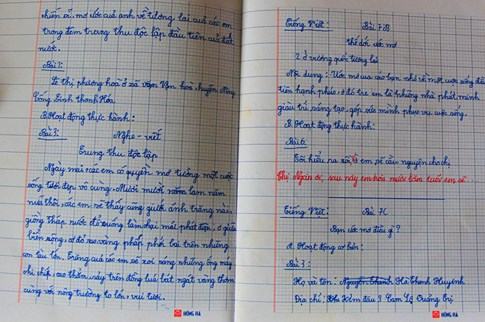 chiến sĩ, mơ ước của anh về tương lai của các em
trong đêm trung thu độc lập đầu tiên của đất
nước.
Bài 7:
Lê thị phương hoa ở xã vạn hoà huyện Nông
Cống tỉnh thanh Hóa
B. Hoạt động thực hành:
Bài 3: Nghe - viết
Trung thu độc lập
Ngày mai, các em có quyền mơ tưởng một cuộc
sống tươi đẹp vô cùng. Mươi mười năm năm
nữa thôi, các em sẽ thấy cũng dưới ánh trăng này,
dòng thác nước đổ xuống làm chạy máy phát điện, ở giữa
biển rộng, cờ đỏ sao vàng phấp phới bay trên những
con tàu lớn. Trăng của các em sẽ soi sáng những ống khói
chi chít, cao thẳm, rải trên đồng lúa bát ngát vàng thơm
cùng với nông trường to lớn, vui tươi.
HỒNG HÀ
Tiếng Việt: Bài 7B
Thế giới ước mơ
2. Ở vương quốc tương lai
Nội dung: Ước mơ của các bạn nhỏ về một cuộc sống đầy
đủ, hạnh phúc, ở đó trẻ em là những nhà phát minh
giàu trí sáng tạo, góp sức mình phục vụ cuộc sống.
B. Hoạt động thực hành:
Bài 6:
Tôi hiểu ra rồi, em sẽ cầu nguyện cho chị
Chị Ngàn ơi, sau này em bốn mươi lăm tuổi em sẽ
Tiếng Việt: Bài 7C
Bạn ước mơ điều gì?
A. Hoạt động cơ bản:
Bài 3:
Họ và tên: Hà Thanh Huyền
Địa chỉ: Kim đâu 3 Cam Lộ Quảng trị
HỒNG HÀ